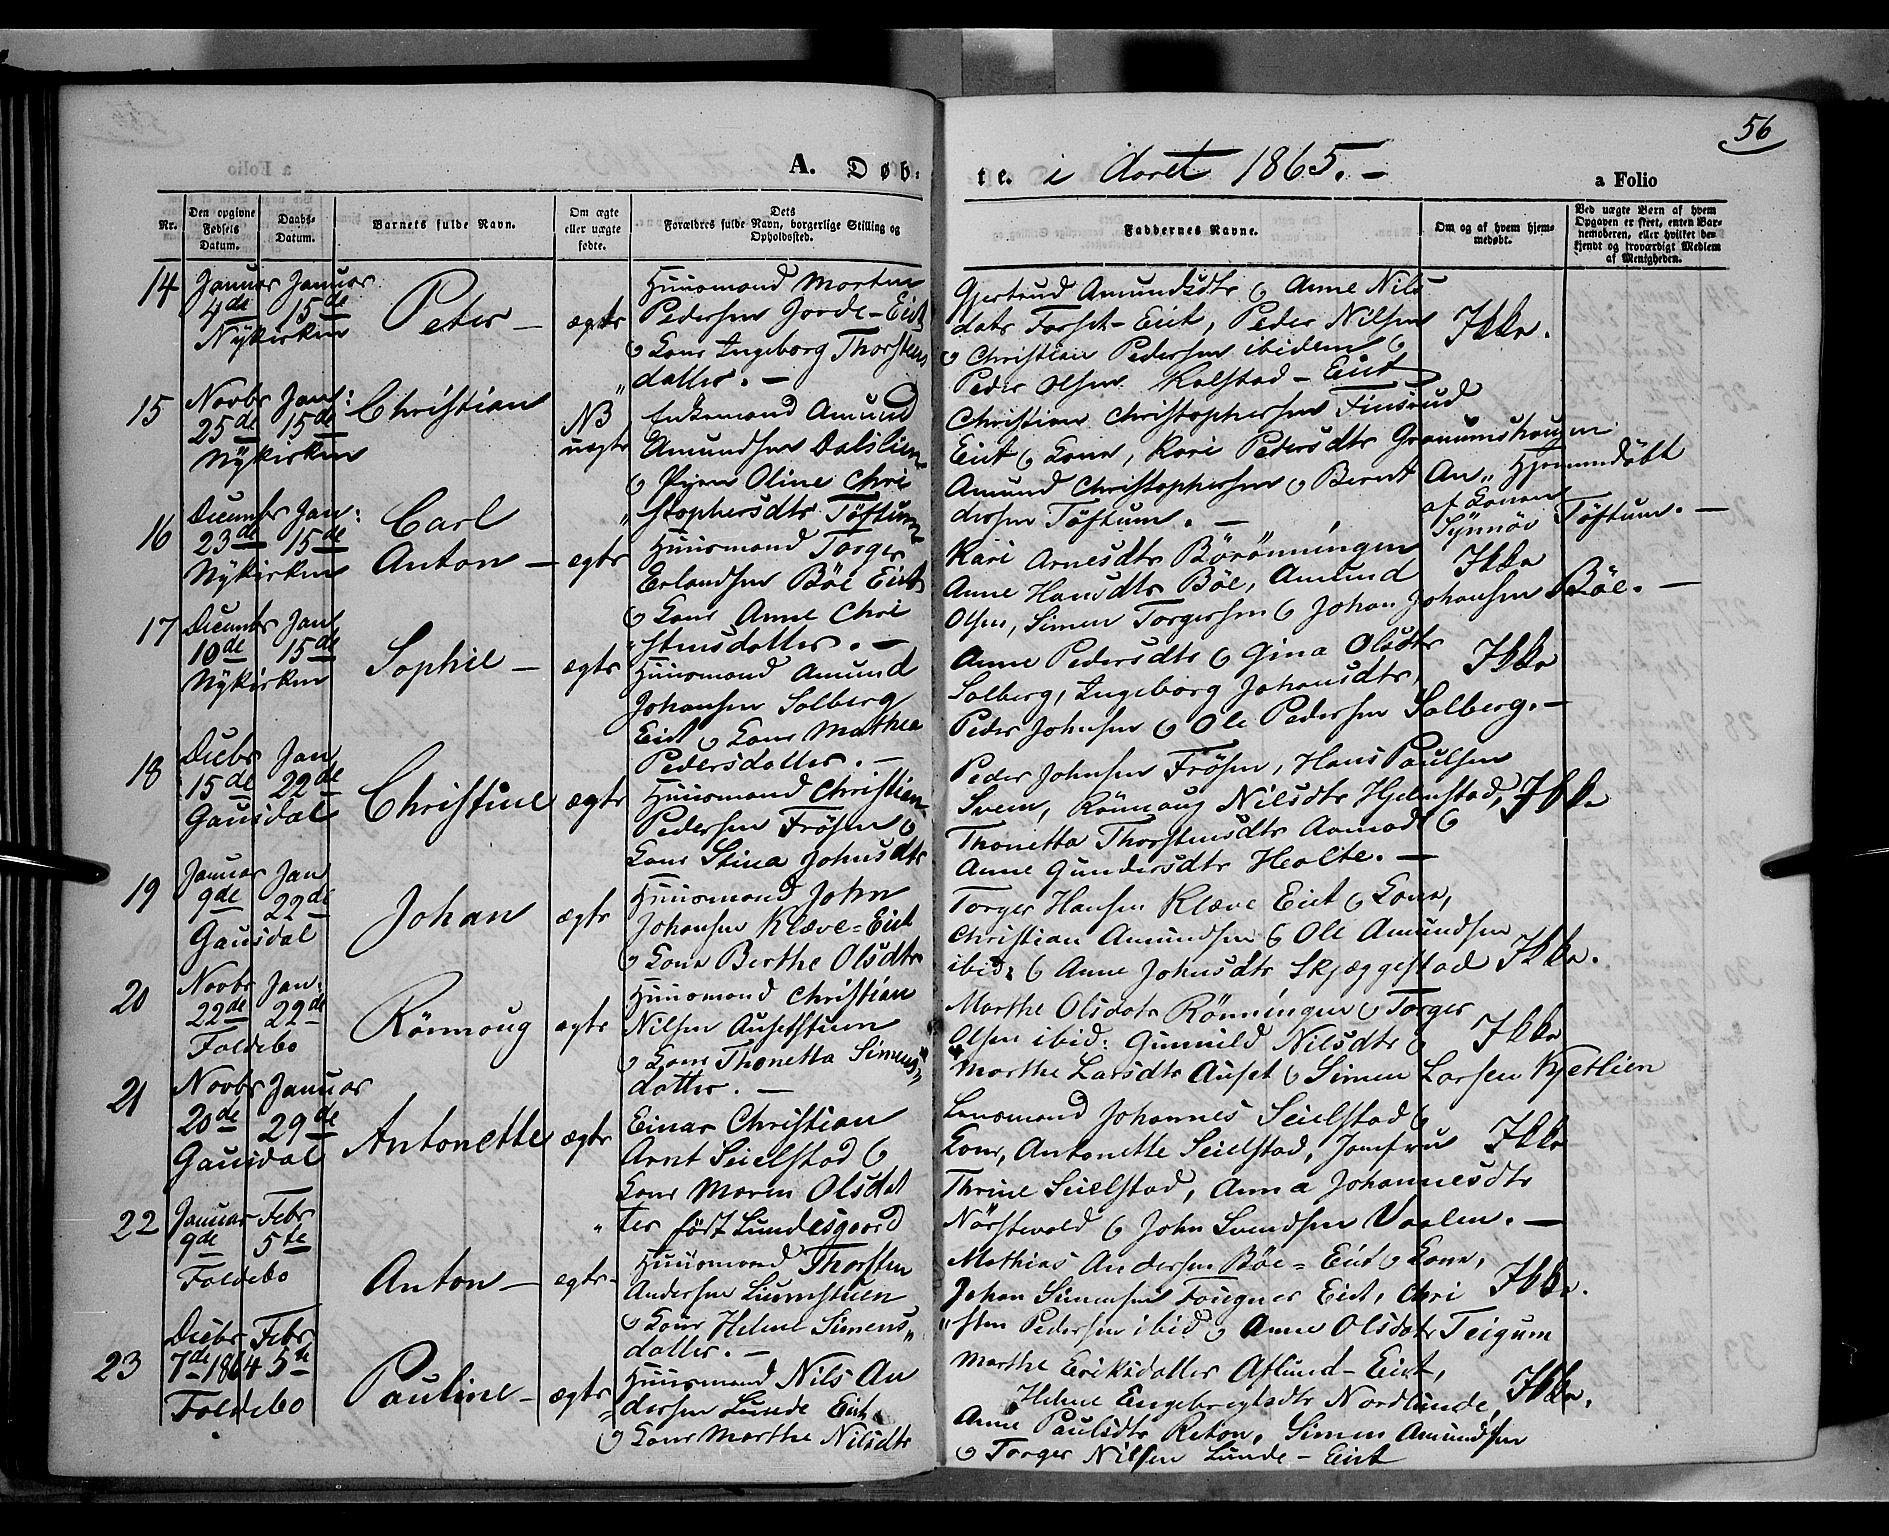 56
A. Døb:
te. i Aaret 1865. –
a Folio
Nr.
Den opgivne Fødsels Datum.
Daabs-Datum.
Barnets fulde Navn.
Om ægte eller uægte fødte.
Dets Forældres fulde Navn, borgerlige Stilling og Opholdssted.
Faddernes Navne.
Om og af hvem hjemmedøbt.
Ved uægte Børn af hvem Opgaven er skeet, enten Barnemoderen, eller hvilket bekjendt og troværdigt Medlem af Menigheden.
14
Januar 4de Januar 15de
Nykirken
Peter –
ægte
Huusmand Morten
Pedersen Jorde – Eiet
og Kone Ingeborg Thorstens
datter. –
Gjertrud Amundsdtr og Anne Nils
datr Forset – Eiet, Peder Nilsen
og Christian Pedersen ibidem og
Peder Olsen Kalstad – Eiet
Ikke.
15
Novbr 25de Jan: 15de
Nykirken
Christian
NB uægte
Enkemand Amund
Amundsen Dalslien
og Pigen Oline Chri
stophersdtr Töftum
Christian Christophersen Finsrud
Eiet og Kone, Kari Pedersdtr Granumshaugen
Amund Christophersen og Bernt An„
dersen Töftum. –
Hjemmedöbt
af Konen
Synnöv Töftum. –
16
Decembr 23de Jan: 15de
Nykirken
Carl
Anton –
ægte
Huusmand Torger
Erlandsen Böe Eiet
og Kone Anne Chri
stensdatter. –
Kari Arnesdtr Börönningen
Anne Hansdtr Böe, Amund
Olsen, Simen Torgersen og Johan Johansen Böe. –
Ikke
17
Decembr 10de Jan 15de
Nykirken
Sophie –
ægte
Huusmand Amund
Johansen Solberg
Eiet og Kone Mathea
Pedersdatter. –
Anne Pedersdtr og Gina Olsdtr
Solberg, Ingeborg Johansdtr,
Peder Johnsen og Ole Pedersen Solberg. –
Ikke
18
Decbr 15de Jan 22de
Gausdal
Christine
ægte
Huusmand Christian
Pedersen Frösen og
Kone Stina Johnsdtr
Peder Johnsen Frösen, Hans Paulsen
Sveen, Rönnoug Nilsdtr Hjelmstad,
Thonetta Thorstensdtr Aamodt og
Anne Gundersdtr Heolte. –
Ikke
19
Januar 9de Jan 22de
Gausdal
Johan
ægte
Huusmand John
Johansen Klæve = Eiet
og Kone Berthe Olsdtr
Torger Hansen Klæve Eiet og Kone,
Christian Amundsen og Ole Amundsen
ibid: og Anne Johnsdtr Skjæggestad
Ikke.
20
Novbr 22de Jan: 22de
Foldebo
Rönnoug
ægte
Huusmand Christian
Nilsen Ausetstuen
og Kone Thonetta Simens„
datter. –
Marthe Olsdatr Rönningen og Torger
Olsen ibid: Gunnild Nilsdtr og
Marthe Larsdtr Auset og Simen Larsen Kjetlien
Ikke
21
Novbr 20de Januar 29de
Gausdal
Antonette
ægte
Einar Christian
Arnt Seielstad og
Kone Maren Olsdat
ter född Lundesgaard
Lensmand Johannes Seielstad og
Kone, Antonette Seielstad, Jomfru
Thrine Seielstad, Anna Johannesdtr
Nörstevold og John Svendsen Vaalen. –
Ikke
22
Januar 9de Febr 5te
Foldebo
Anton –
ægte
Huusmand Thorsten
Andersen Liumstuen
og Kone Helene Simens„
datter. –
Mathias Andersen Böe = Eiet og Kone,
Johan Simensen Fougner Eiet, Chri
„sten Pedersen ibid og Anne Olsdatr Teigum
Ikke.
23
Decbr 7de 1864 Febr 5te
Foldebo
Pauline –
ægte
Huusmand Nils An
dersen Lunde Eiet
og Kone Marthe Nilsdtr
Marthe Eriksdatter Aflund – Eiet,
Helene Engebregtsdtr Nordlunde,
Anne Paulsdtr Reton, Simen Amundsen
og Torger Nilsen Lunde – Eiet
Ikke.